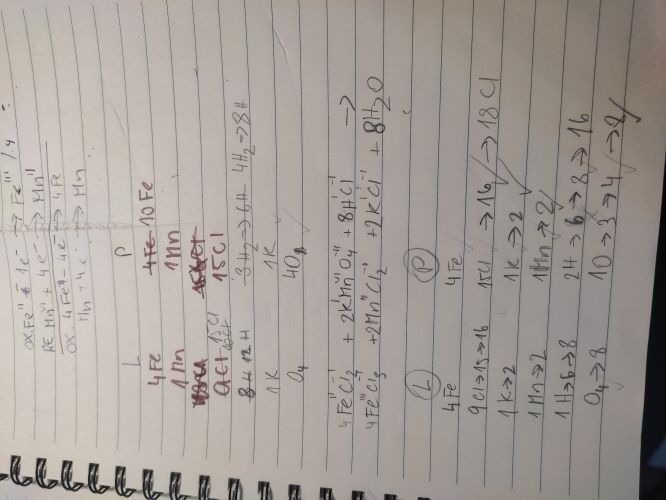 ox. Fe^II - 1e^- → Fe^III /·4
RE Mn^VI + 4e^- → Mn^II
OX. 4Fe^II - 4e^- → 4Fe
Mn + 4e → Mn
L P
4Fe 4Fe 10Fe
1Mn 1Mn
9Cl 15Cl 15Cl
8H 12H 3H2→6H 4H2→8H
1K 1K
O4 4O
4Fe^II Cl2^-I + 2K^I Mn^VI O4^-II + 8H^I Cl^-I →
4Fe^III Cl3^-I + 2Mn^II Cl2^-I + 2K^I Cl^-I + 8H2O
L P
4Fe 4Fe
9Cl→15→16 15Cl →16 → 18Cl
1K→2 1K→2
1Mn→2 1Mn→2
1H→6→8 2H→6→8→16
O4→8 1O→3→4→8